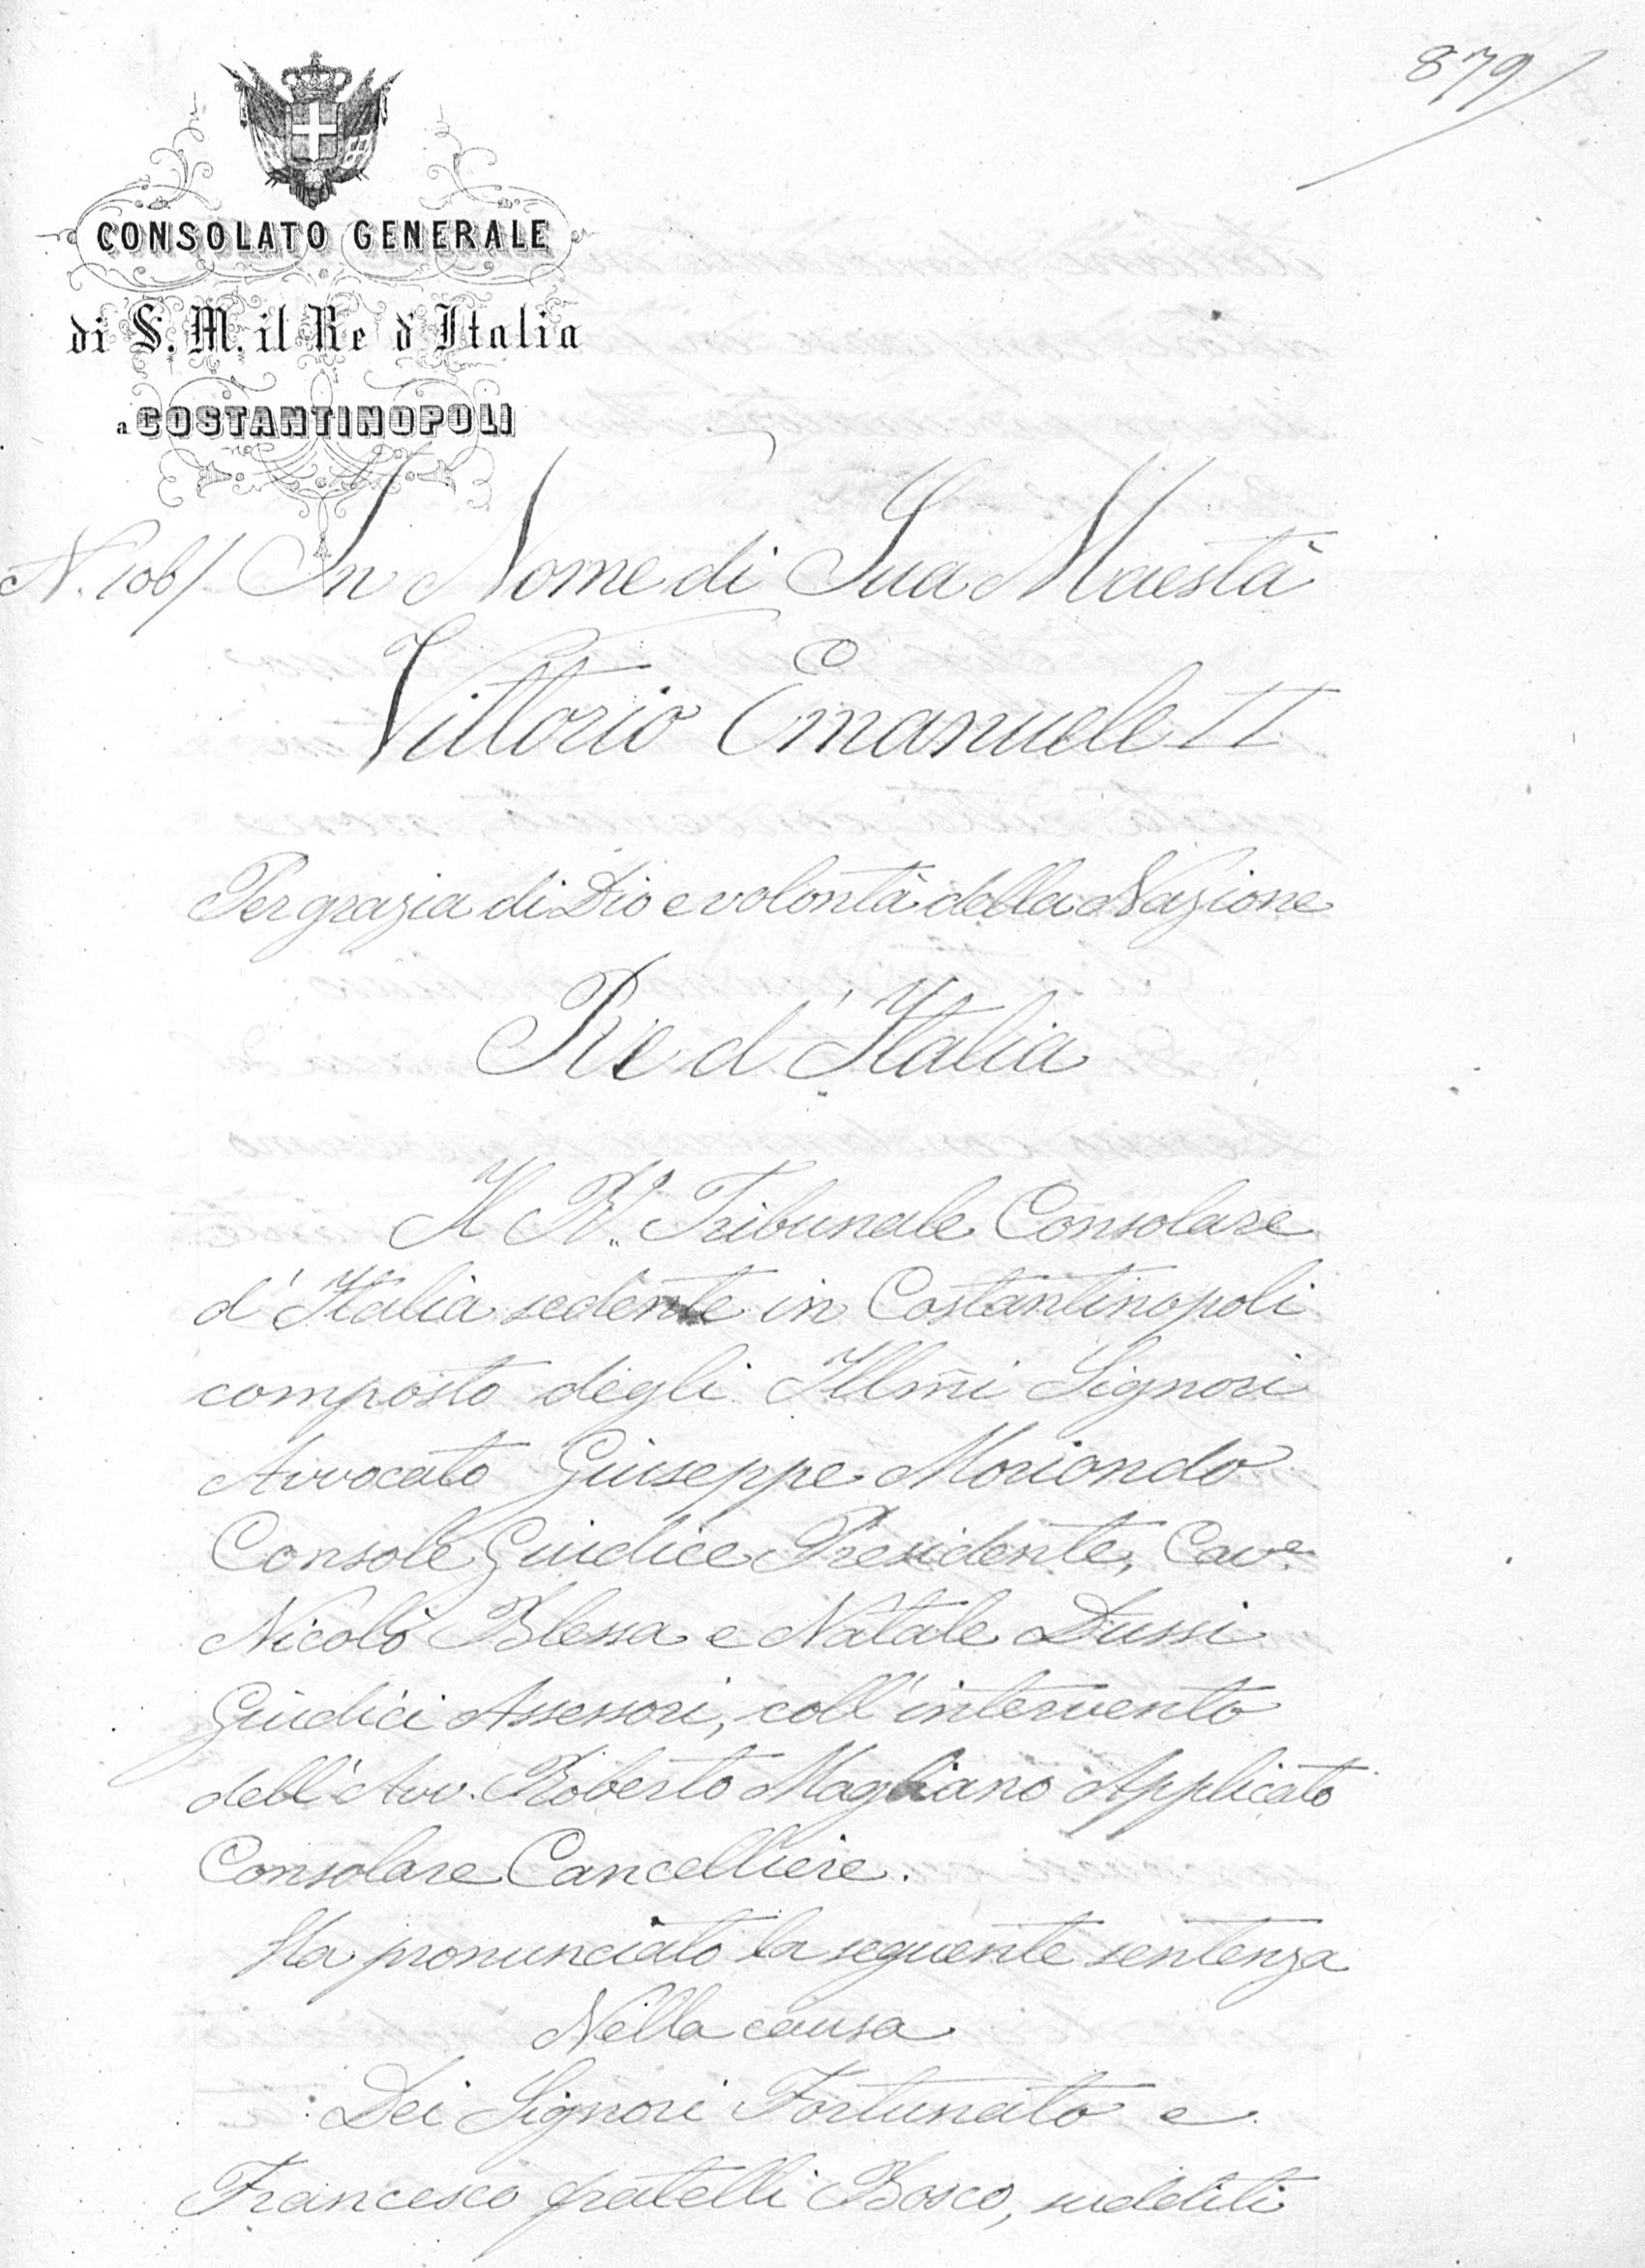 879/
CONSOLATO GENERALE
di S. M. il Re d'Italia
a COSTANTINOPOLI
N. 106/. In Nome di Sua Maestà
Vittorio Emanuele II
Per grazia di Dio e volontà della Nazione
Re d'Italia
Il R.. Tribunale Consolare
d'Italia sedente in Costantinopoli
composto degli Illmi Signori
Avvocato Giuseppe Moriondo
Console Giudice Presidente, Cave
Nicolò Blessa e Natale Dussi
Giudici Assessori, coll'intervento
dell'Avv. Roberto Magliano Applicato
Consolare Cancelliere.
Ha pronunciato la seguente sentenza
Nella causa
Dei Signori Fortunato e
Francesco fratelli Bosco, sudditi